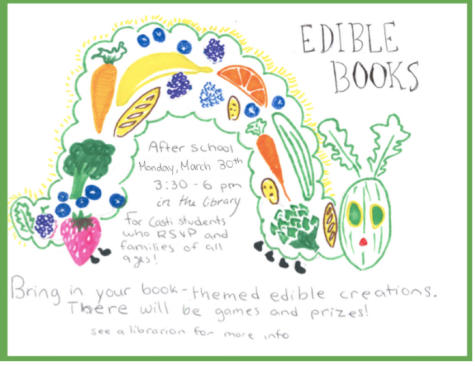 EDIBLE
BOOKS
After school
Monday, March 30th
3:30 - 6 pm
in the library
For Casti students
who RSVP and
families of all
ages!
Bring in your book-themed edible creations.
There will be games and prizes!
see a librarian for more info